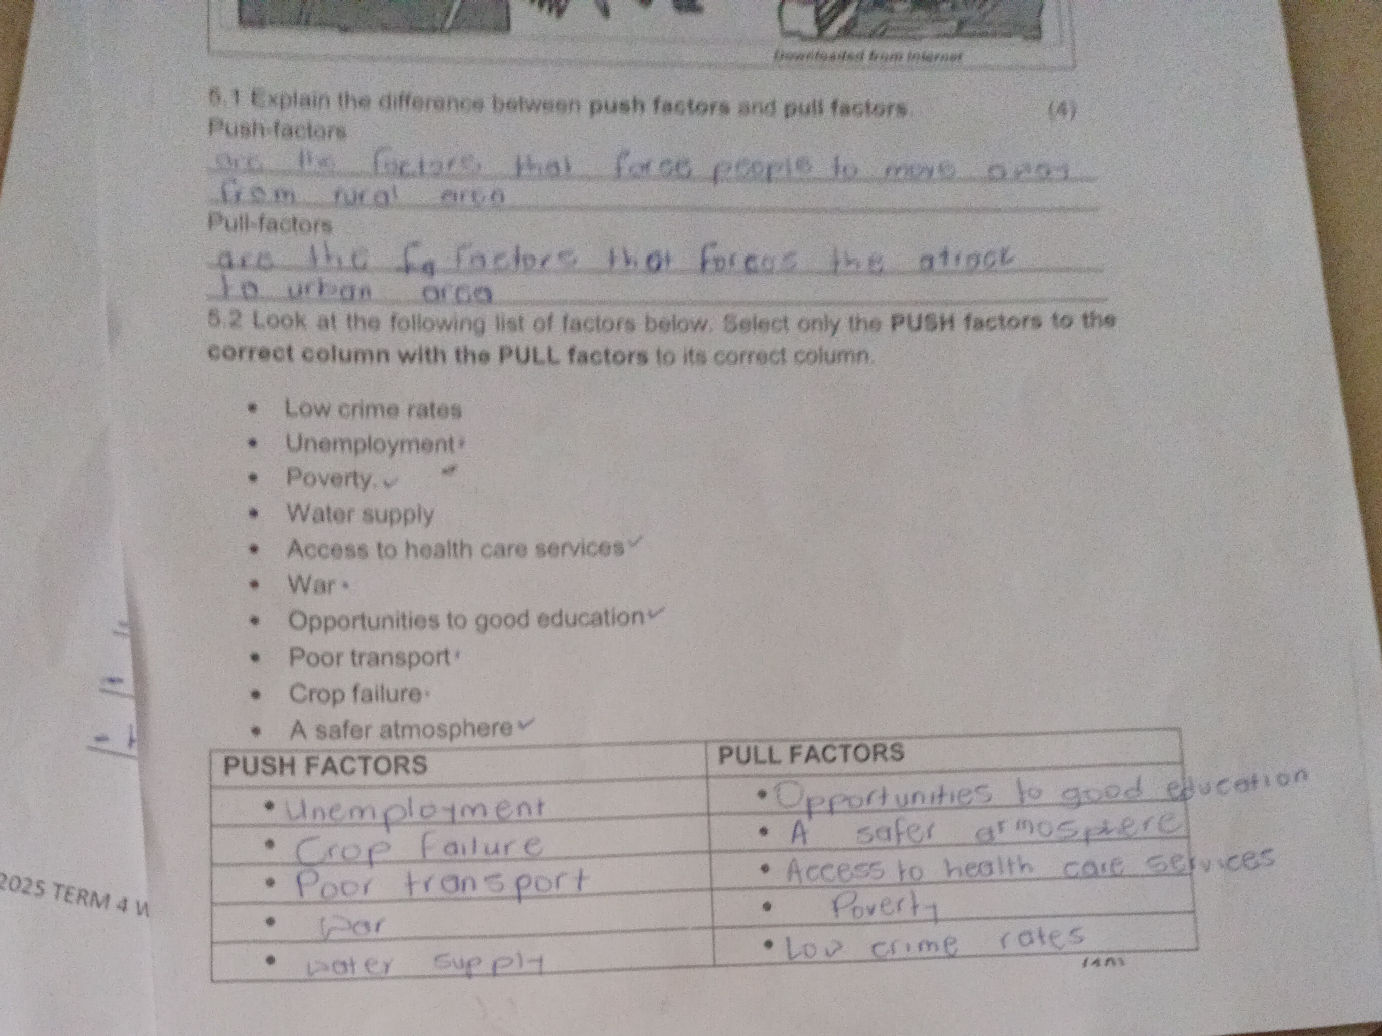 Downloaded from Internet
5.1 Explain the difference between push factors and pull factors. (4)
Push-factors
are the factors that force people to move away
from rural area
Pull-factors
are the fa factors that forces the atrack
to urban area
5.2 Look at the following list of factors below. Select only the PUSH factors to the
correct column with the PULL factors to its correct column.
• Low crime rates
• Unemployment
• Poverty.
• Water supply
• Access to health care services
• War
• Opportunities to good education
• Poor transport
• Crop failure
• A safer atmosphere
PUSH FACTORS PULL FACTORS
• Unemployment • Opportunities to good education
• Crop failure • A safer atmosphere
• Poor transport • Access to health care services
• War • Poverty
• water supply • Low crime rates
2025 TERM 4